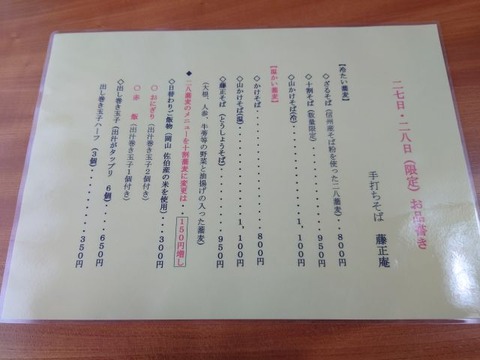 二七日・二八日(限定)お品書き
手打ちそば 藤正庵
【冷たい蕎麦】
◇ざるそば(信州産そば粉を使った二八蕎麦)・・800円
◇十割そば(数量限定)・・・・・・・950円
◇山かけそば(冷)・・・・・・・1,100円
【温かい蕎麦】
◇かけそば・・・・・・・・・・800円
◇山かけそば(温)・・・・・・・1,100円
◇藤正そば(とうしょうそば)・・・・・950円
(大根、人参、牛蒡等の野菜と油揚げの入った蕎麦)
◆二八蕎麦のメニューを十割蕎麦に変更は・・150円増し
◇日替わりご飯物(岡山 佐伯産の米を使用)・・・300円
○おにぎり(出汁巻き玉子2個付き)
○赤 飯(出汁巻き玉子1個付き)
◇出し巻き玉子(出汁がタップリ 6個)・・・650円
出し巻き玉子ハーフ(3個)・・・・・350円